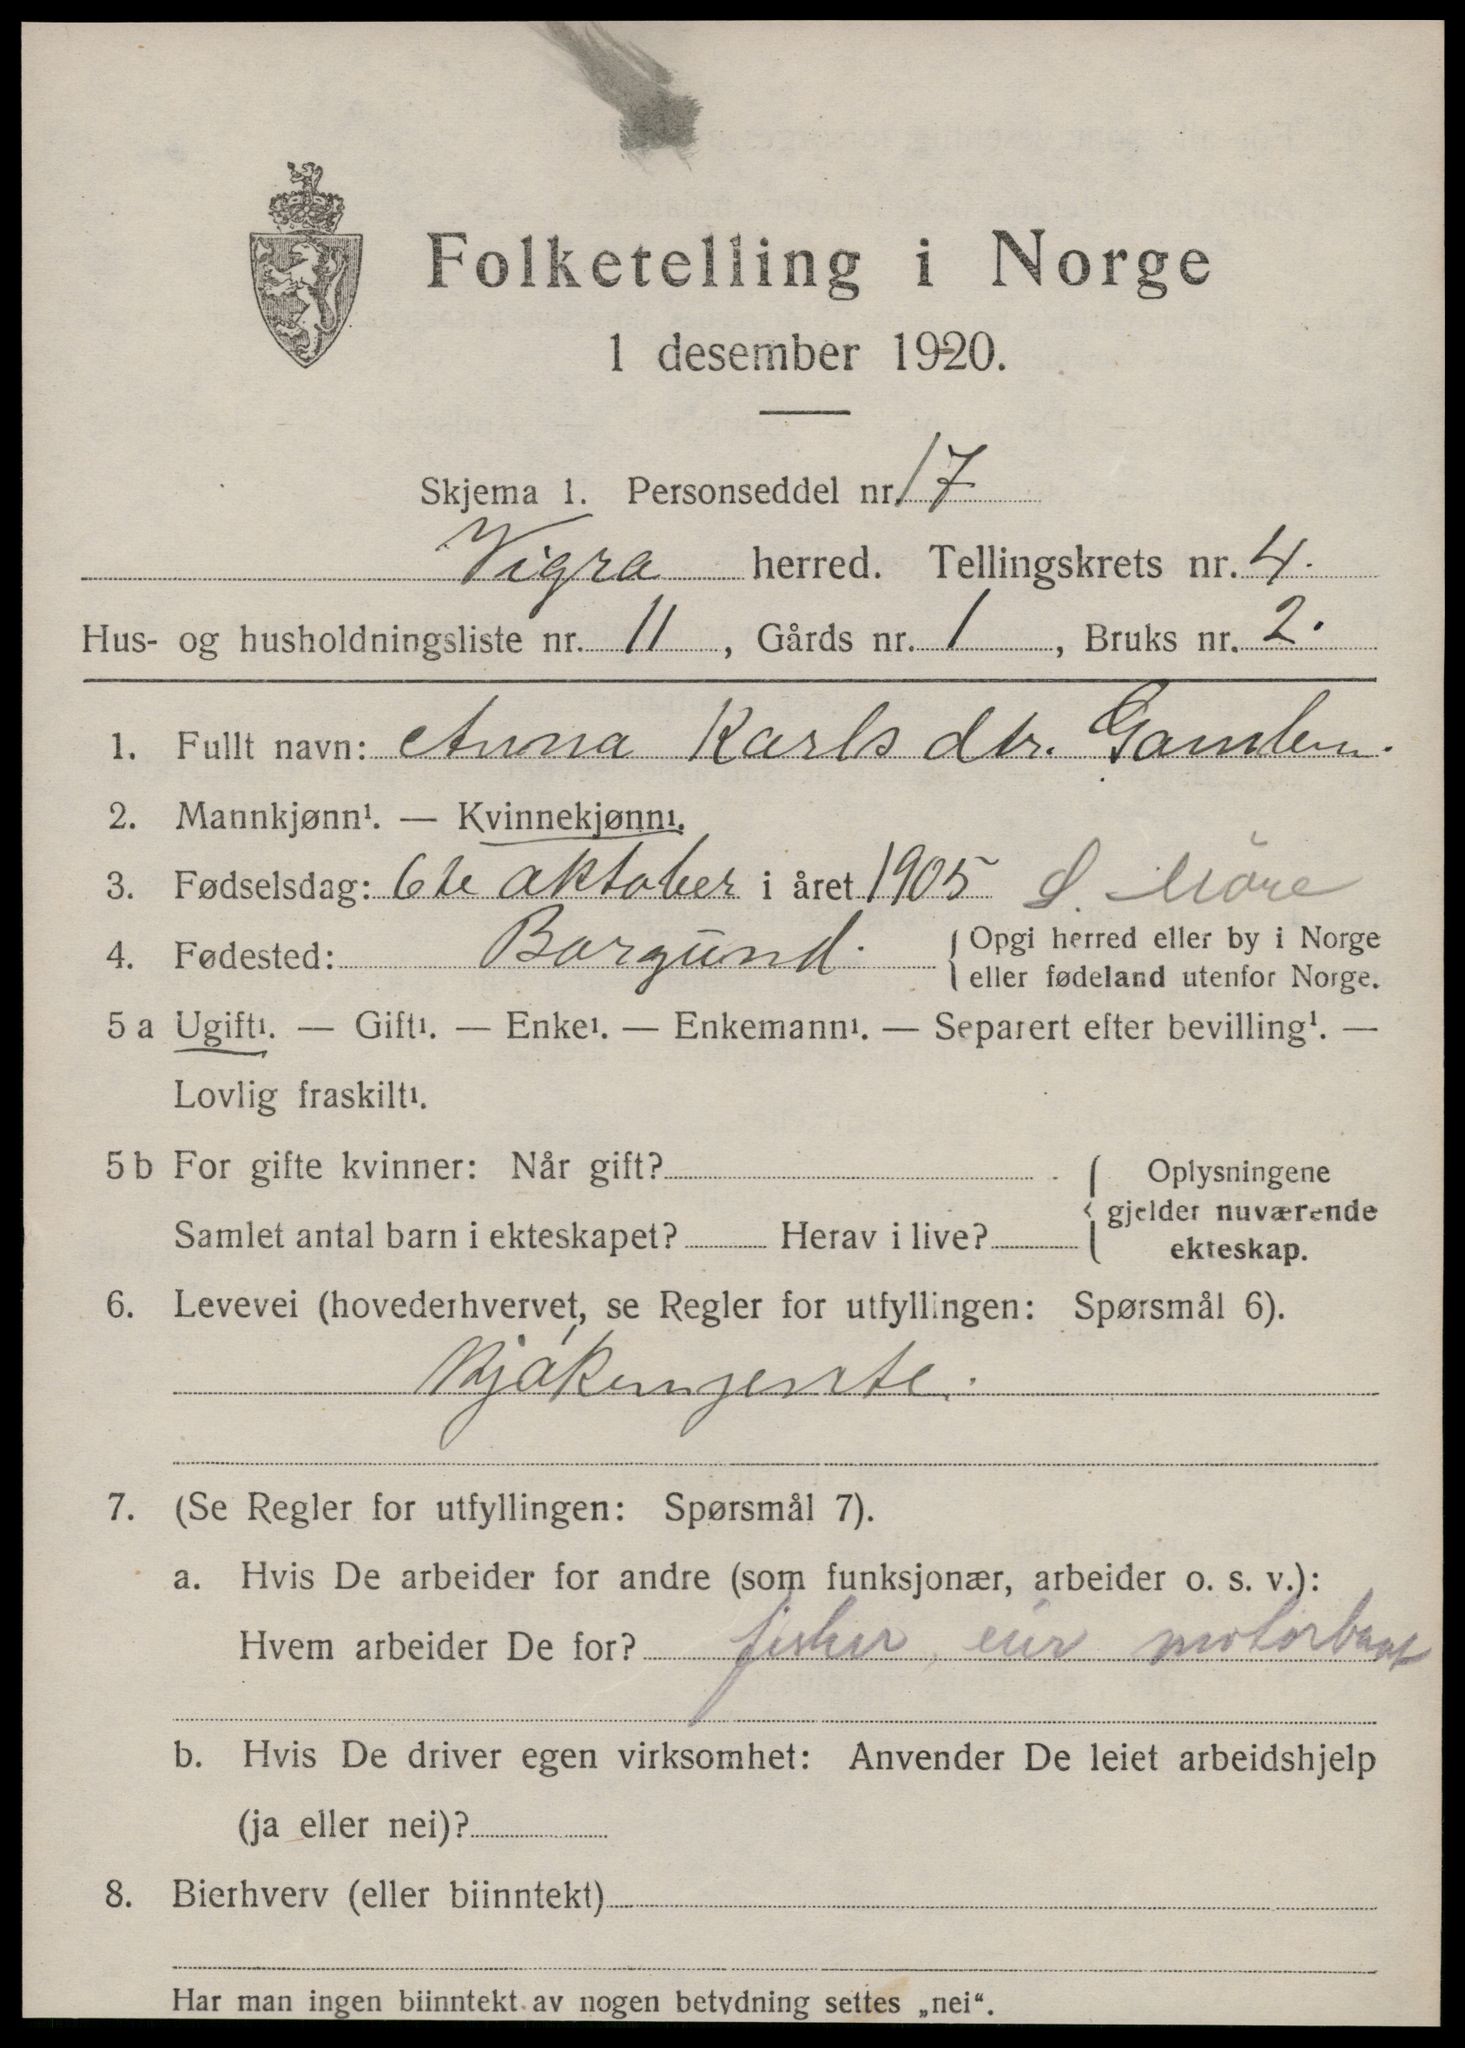 Folketelling i Norge
1 desember 1920.
Skjema 1. Personseddel nr. 17
Vigra herred. Tellingskrets nr. 4.
Hus- og husholdningsliste nr. 11, Gårds nr. 1, Bruks nr. 2.
1. Fullt navn: Anna Karls dtr. Gamlem.
2. Mannkjønn¹. — Kvinnekjønn¹.
3. Fødselsdag: 6te oktober i året 1905 S. Møre
4. Fødested: Borgund. {Opgi herred eller by i Norge
eller fødeland utenfor Norge.
5 a Ugift¹. — Gift¹. — Enke¹. — Enkemann¹. — Separert efter bevilling¹. —
Lovlig fraskilt¹.
5 b For gifte kvinner: Når gift?
Samlet antal barn i ekteskapet? Herav i live?
Oplysningene
gjelder nuværende
ekteskap.
6. Levevei (hovederhvervet, se Regler for utfyllingen: Spørsmål 6).
Kjøkengente.
7. (Se Regler for utfyllingen: Spørsmål 7).
a. Hvis De arbeider for andre (som funksjonær, arbeider o. s. v.):
Hvem arbeider De for? fisker, eier motorbaat
b. Hvis De driver egen virksomhet: Anvender De leiet arbeidshjelp
(ja eller nei)?
8. Bierhverv (eller biinntekt)
Har man ingen biinntekt av nogen betydning settes „nei“.